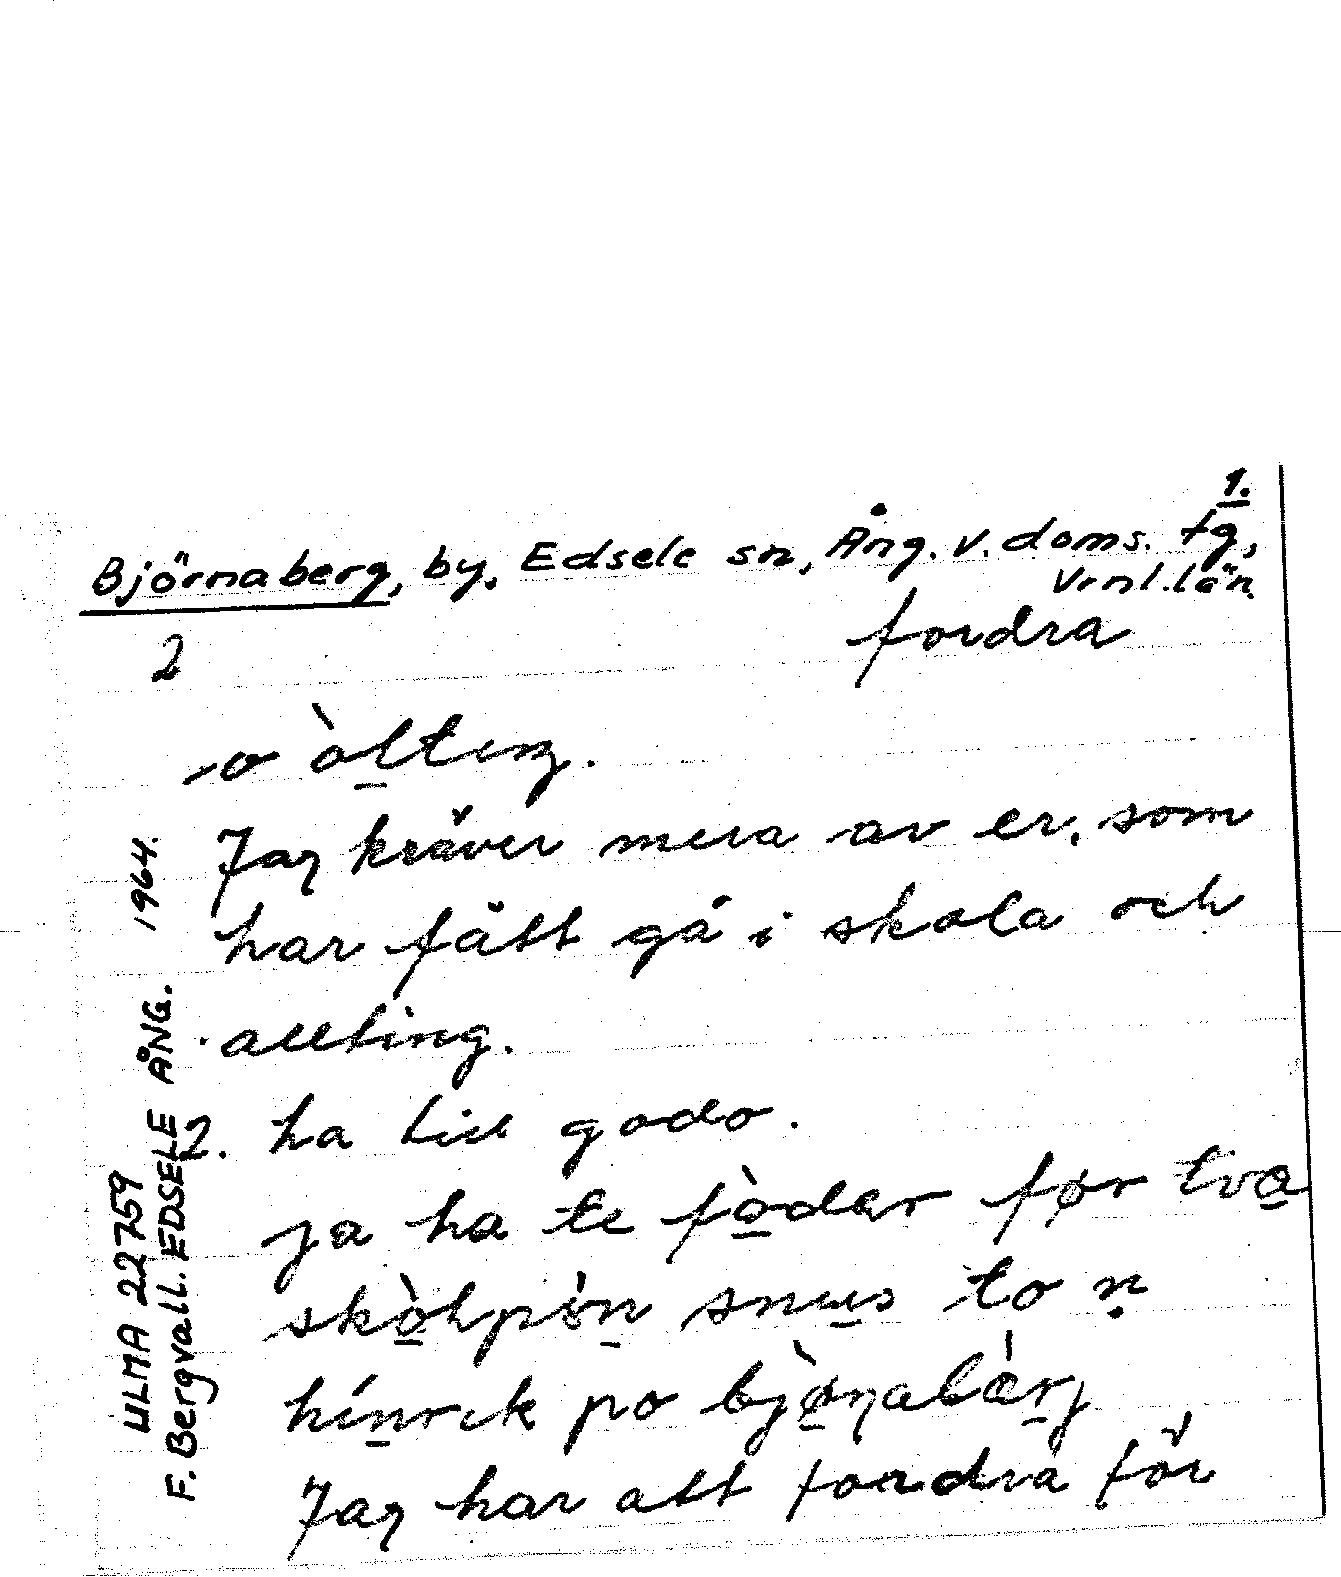 1.
Björnaberg, by, Edsele sn, Ång. v. doms. tg,
Vrnl. län
2 fordra
o òlteŋ.
Jag kräver mera av er, som
har fått gå i skola och
allting.
2. ha till godo.
ja ha te fòdær før tvɑ
skòhpòn snus to n̥
hínrik po bjònabærj
Jag har att fordra för
ULMA 22759
F. Bergvall. EDSELE ÅNG. 1964.